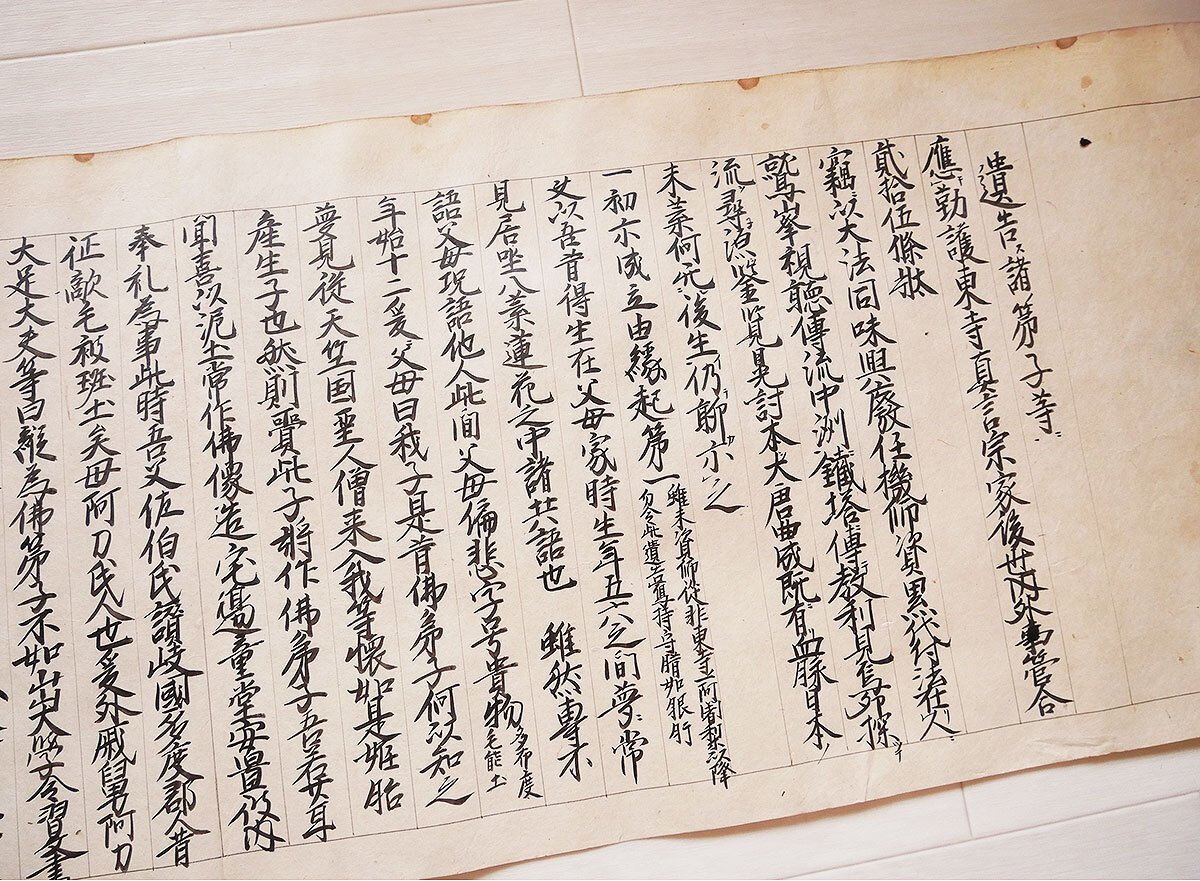 遺告諸弟子等
應勤護東寺真言宗家後世内外事管合
貳拾伍條狀
竊以大法同味興廢任機師資累代付法在人
鷲峯視聽傳流中洲鐵塔傳教利見
流尋源鑒覽晃討本大唐曲成既有血脉日本
末葉何无後生仍聊示之
一初示成立由緣起第一 雖末資師從非東寺一阿闍梨以降 勿令此遺告置持守惜如眼肝
夫以吾昔得生在父母家時生年五六之間夢常
見居坐八葉蓮花之中諸共語也 雖然專不
語父母況語他人此間父母偏悲字号貴物 多布度毛能土
年始十二爰父母曰我子是昔佛弟子何以知之
夢見從天竺国聖人僧來入我等懷如是妊胎
産生子也然則賷此子將作佛弟子吾若女耳
聞喜以泥土常作佛像造宅邊童堂安置彼内
奉礼為事此時吾父佐伯氏讃岐國多度郡人昔
征敵毛被班土矣母阿刀氏人也爰外戚舅阿刀
大足大夫等曰縱為佛弟子不如出大學令習文書